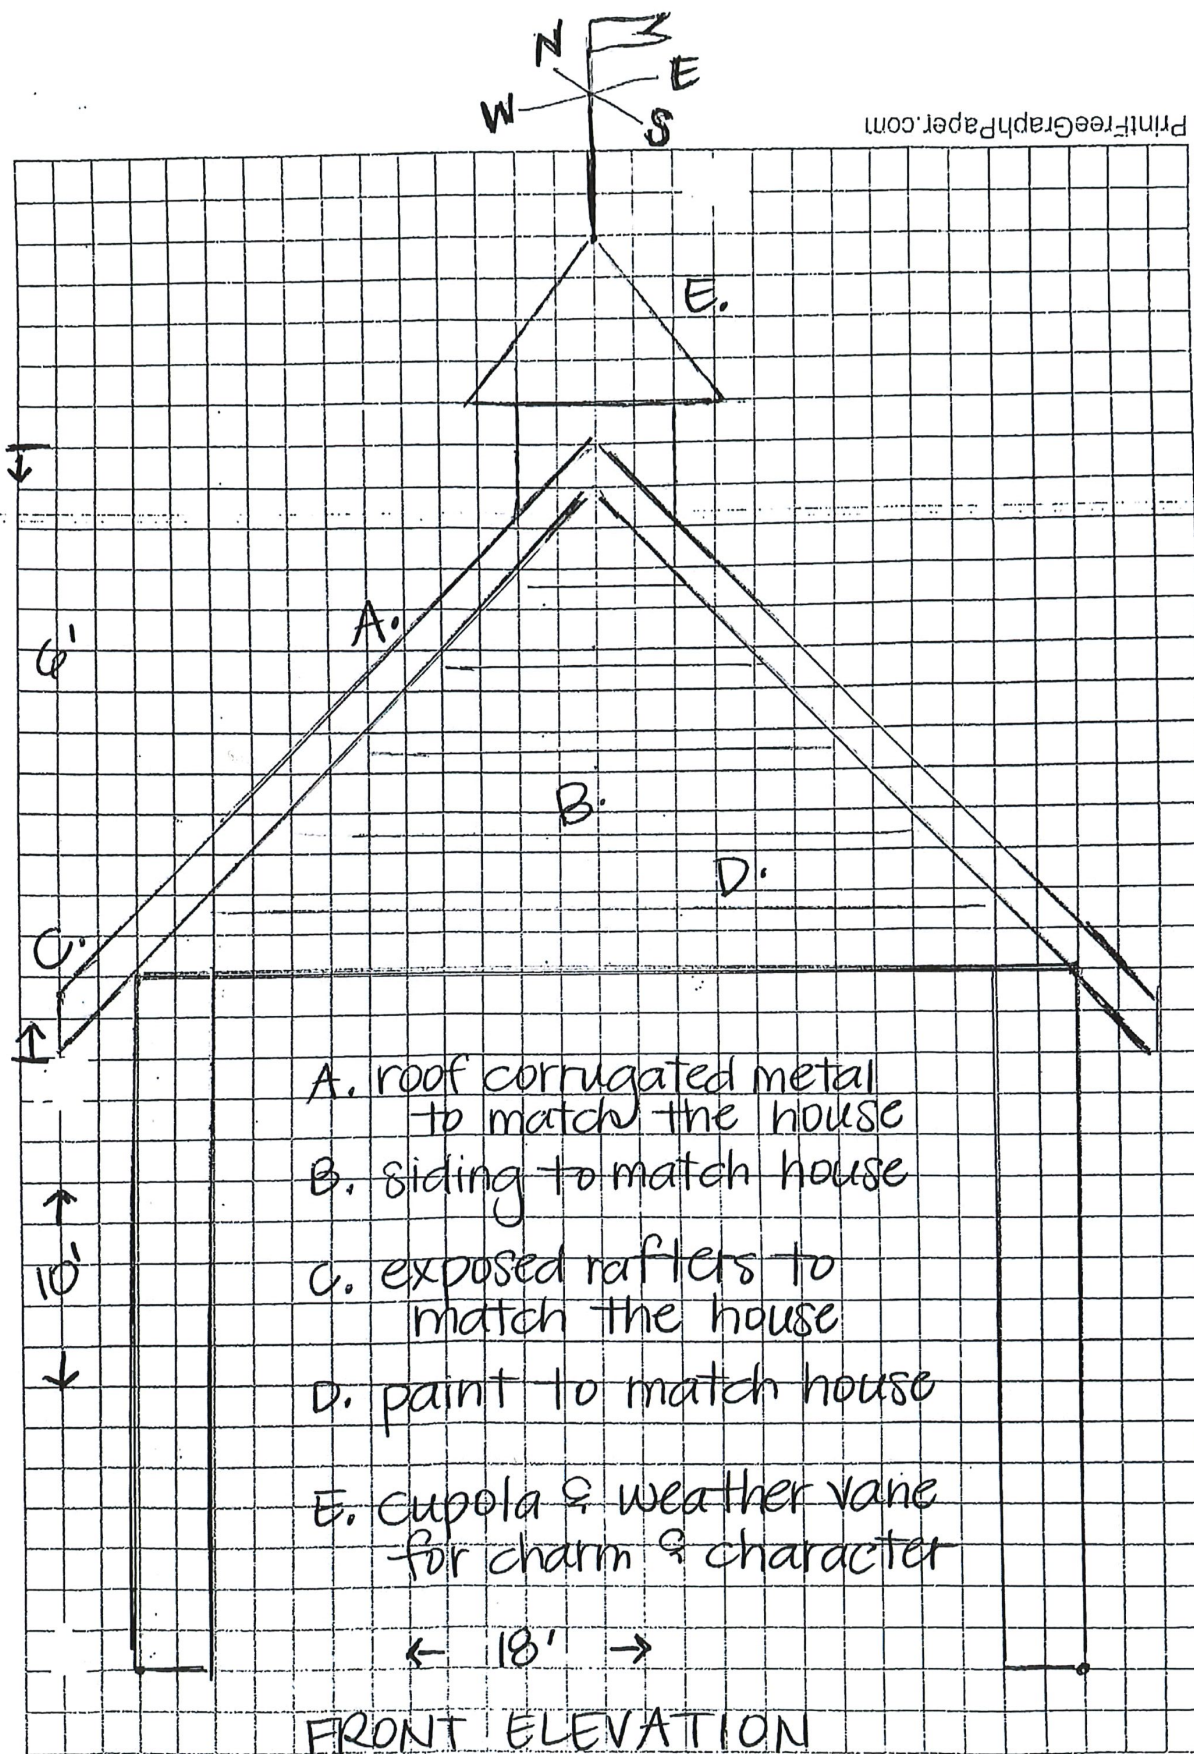 N
E
W
S
PrintFreeGraphPaper.com
E.
A.
6'
B.
D.
C.
A. roof corrugated metal
to match the house
B. siding to match house
10'
C. exposed rafters to
match the house
D. paint to match house
E. cupola & weather vane
for charm & character
← 18' →
FRONT ELEVATION